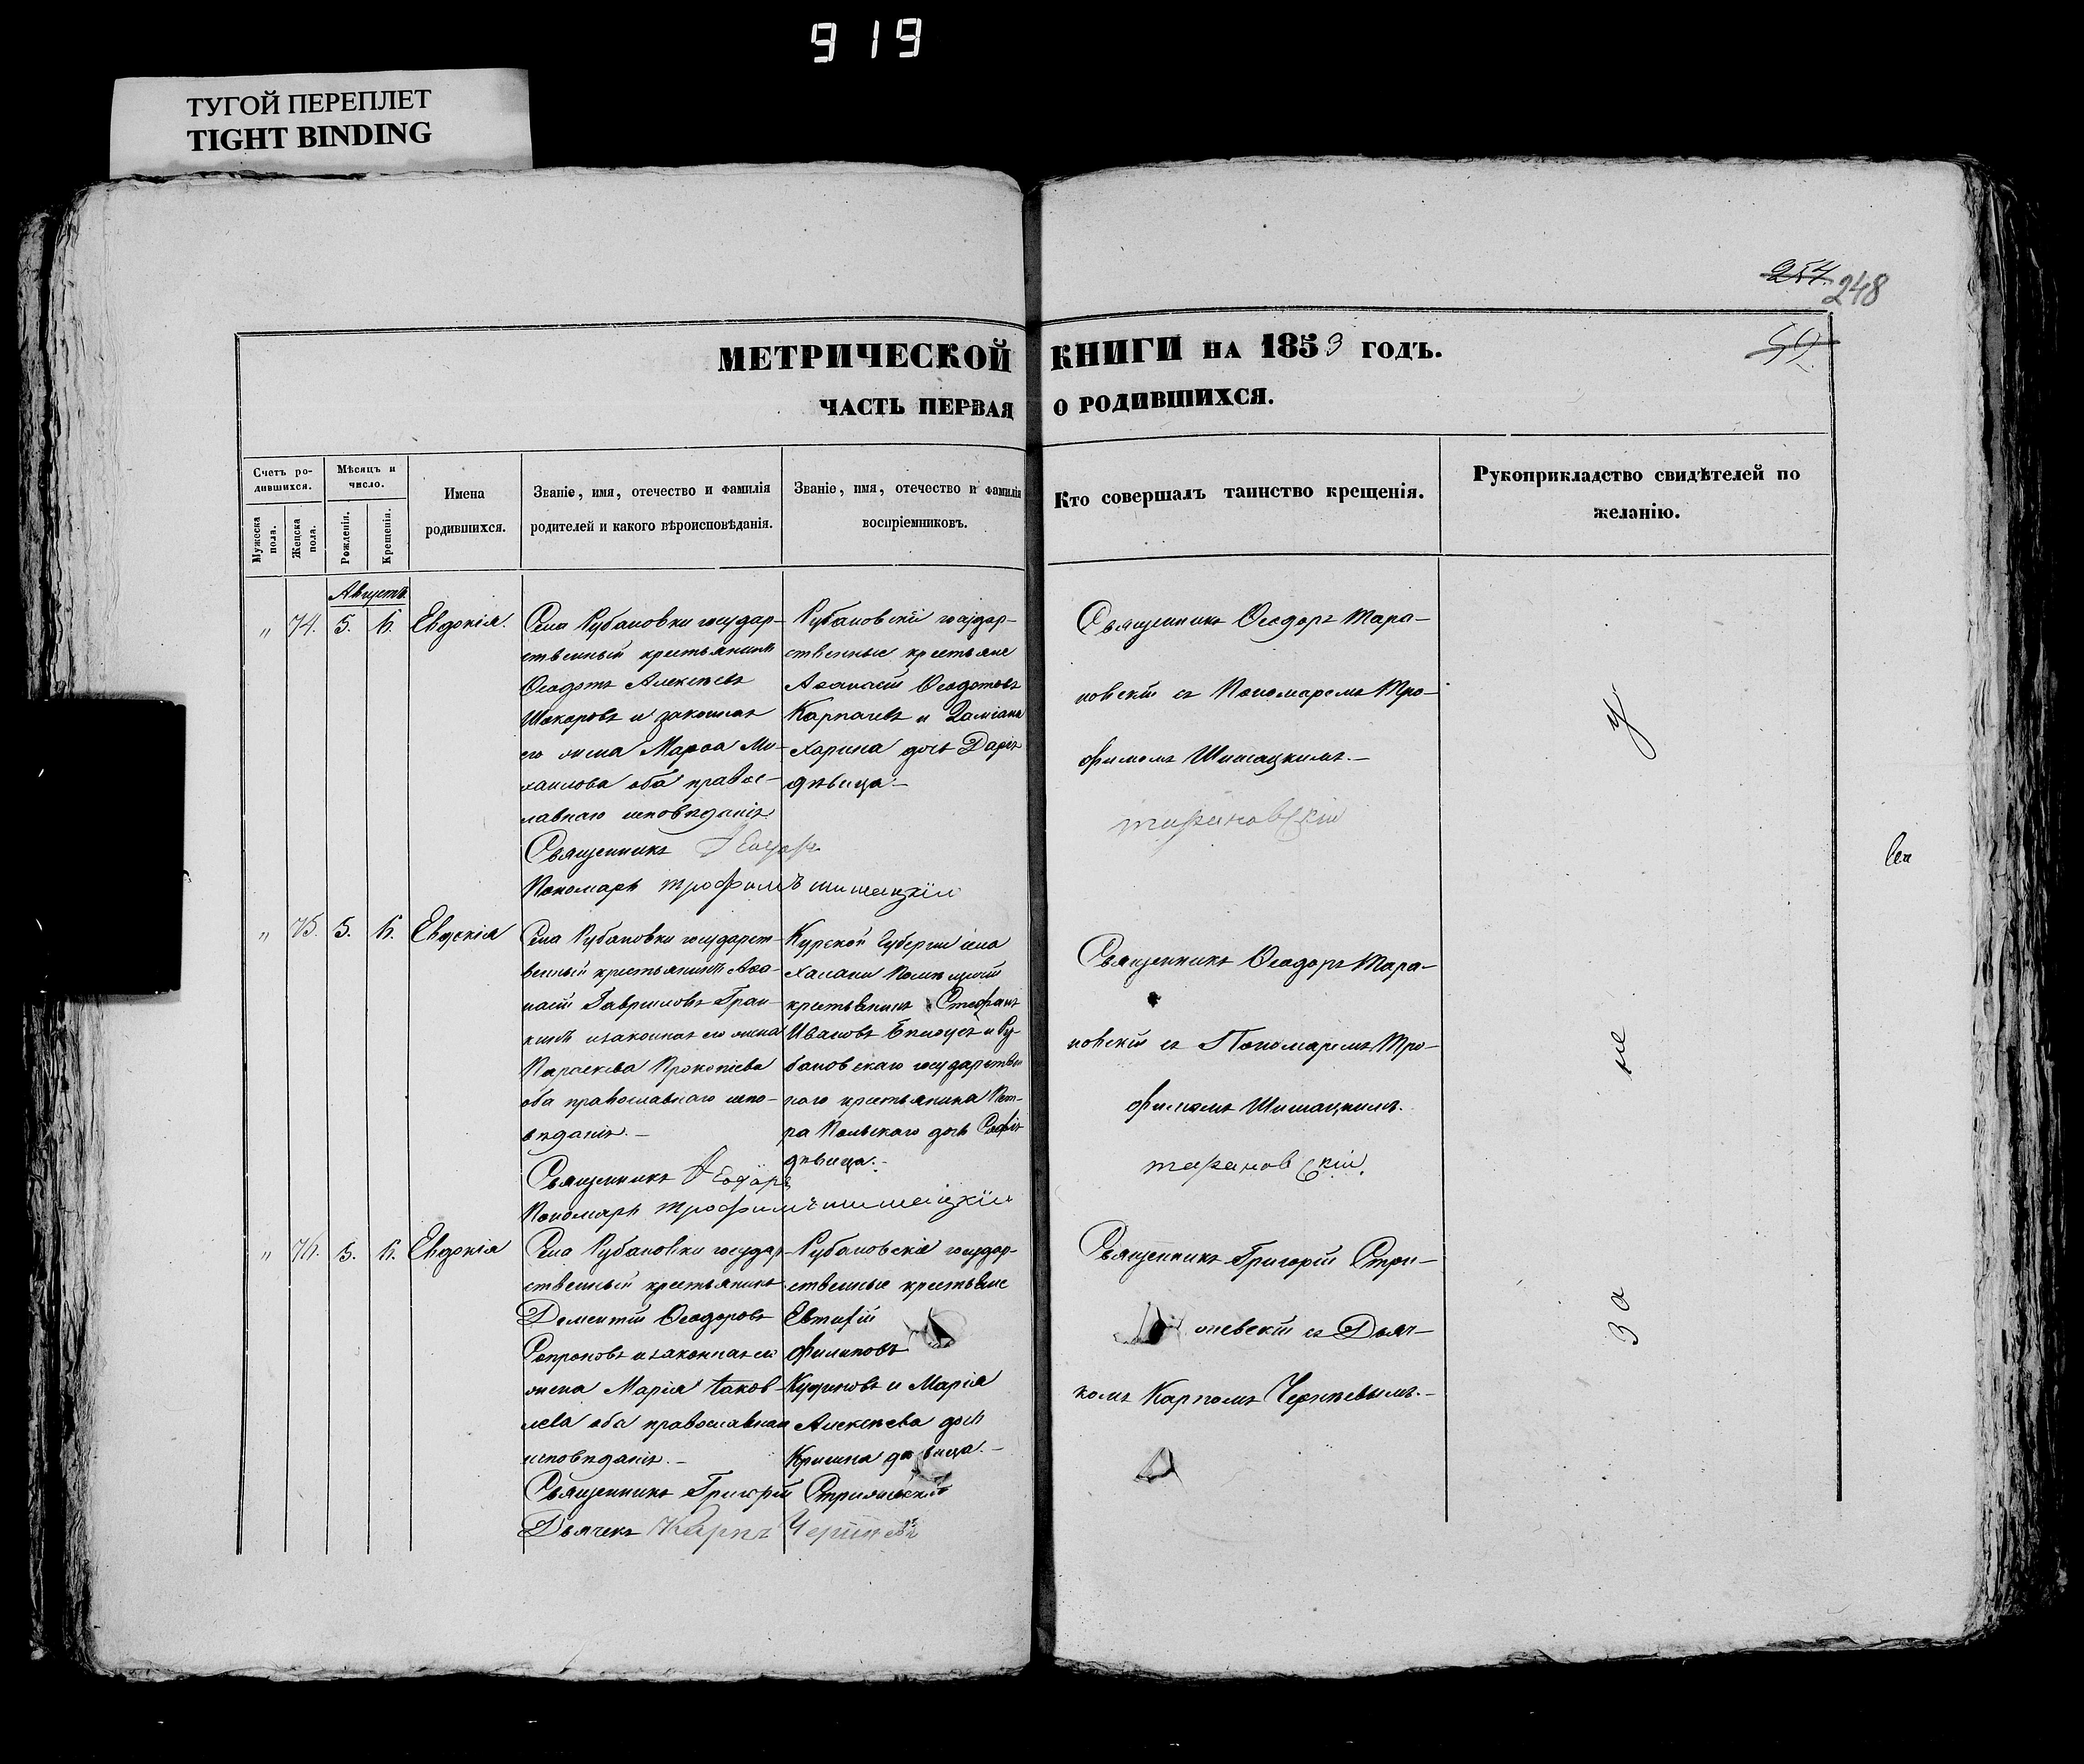 919
ТУГОЙ ПЕРЕПЛЕТ
TIGHT BINDING
254.
248
52.
МЕТРИЧЕСКОЙ КНИГИ НА 1853 ГОДЪ.
ЧАСТЬ ПЕРВАЯ О РОДИВШИХСЯ.
Счетъ родившихся.
Мужеска пола.
Женска пола.
Мѣсяцъ и число.
Рожденія.
Крещенія.
Имена родившихся.
Званіе, имя, отечество и фамилія родителей и какого вѣроисповѣданія.
Званіе, имя, отечество и фамилія воспріемниковъ.
Кто совершалъ таинство крещенія.
Рукоприкладство свидѣтелей по желанію.
Августъ
" 74. 5. 6. Евдокія.
Села Рубановки государ-
ственный крестьянинъ
Ѳеодотъ Алексѣевъ
и законная
его жена Марѳа Ми-
хаилова оба право-
славнаго исповѣданія.
Священникъ Ѳеодоръ
Пономарь Трофимъ Шимацкій
Рубановскіе государ-
ственные крестьяне
Аѳанасій Ѳеодотовъ
Карпачевъ и Даміана
Харина дочь Дарія
дѣвица.—
Священникъ Ѳеодоръ Тара-
новскій съ Пономаремъ Тро-
фимомъ Шимацкимъ.—
Тарановскій
" 75. 5. 6. Евдокія
Села Рубановки государст-
венный крестьянинъ Аѳа-
насій Гавриловъ
и законная его жена
Параскева Прокопіева
оба православнаго испо-
вѣданія.—
Священникъ Ѳеодоръ
Пономарь Трофимъ Шимацкій
Курской Губерніи села
Халани Помѣщичій
крестьянинъ Стефанъ
Ивановъ и Ру-
бановскаго государствен-
наго крестьянина Пет-
ра Польскаго дочь Софія
дѣвица.—
Священникъ Ѳеодоръ Тара-
новскій съ Пономаремъ Тро-
фимомъ Шимацкимъ.
Тарановскій.
" 76. 5. 6. Евдокія
Села Рубановки государ-
ственный крестьянинъ
Дементій Ѳеодоровъ
Сопроновъ и законная его
жена Марія Іаков-
лева оба православнаго
исповѣданія.—
Священникъ Григорій Стрижевскій
Дьячекъ Карпъ
Рубановскіе государ-
ственные крестьяне
Евтихій
Филиповъ
и Марія
Алексѣева дочь
дѣвица.—
Священникъ Григорій Стри-
жевскій съ Дьяч-
комъ Карпомъ
у
не
за